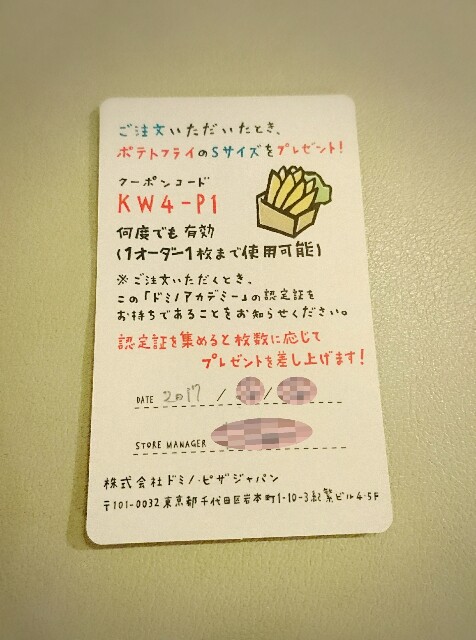 ご注文いただいたとき、
ポテトフライのSサイズをプレゼント!
クーポンコード
KW4-P1
何度でも有効
(1オーダー1枚まで使用可能)
※ご注文いただくとき、
この「ドミノアカデミー」の認定証を
お持ちであることをお知らせください。
認定証を集めると枚数に応じて
プレゼントを差し上げます!
DATE 2017 / /
STORE MANAGER
株式会社ドミノ・ピザジャパン
〒101-0032 東京都千代田区岩本町1-10-3紀繁ビル4・5F